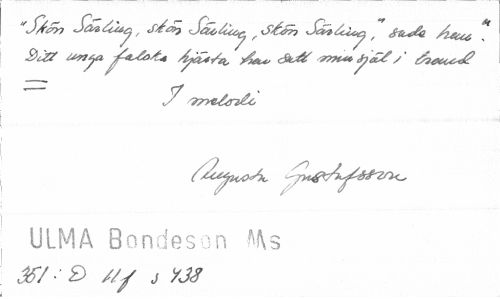 "Skön Särling, skön Särling, skön Särling," sade han".
Ditt unga falska hjärta har satt min själ i brand
I melodi
Augusta Gustafsson
ULMA Bondeson Ms
351: D Hf s 438